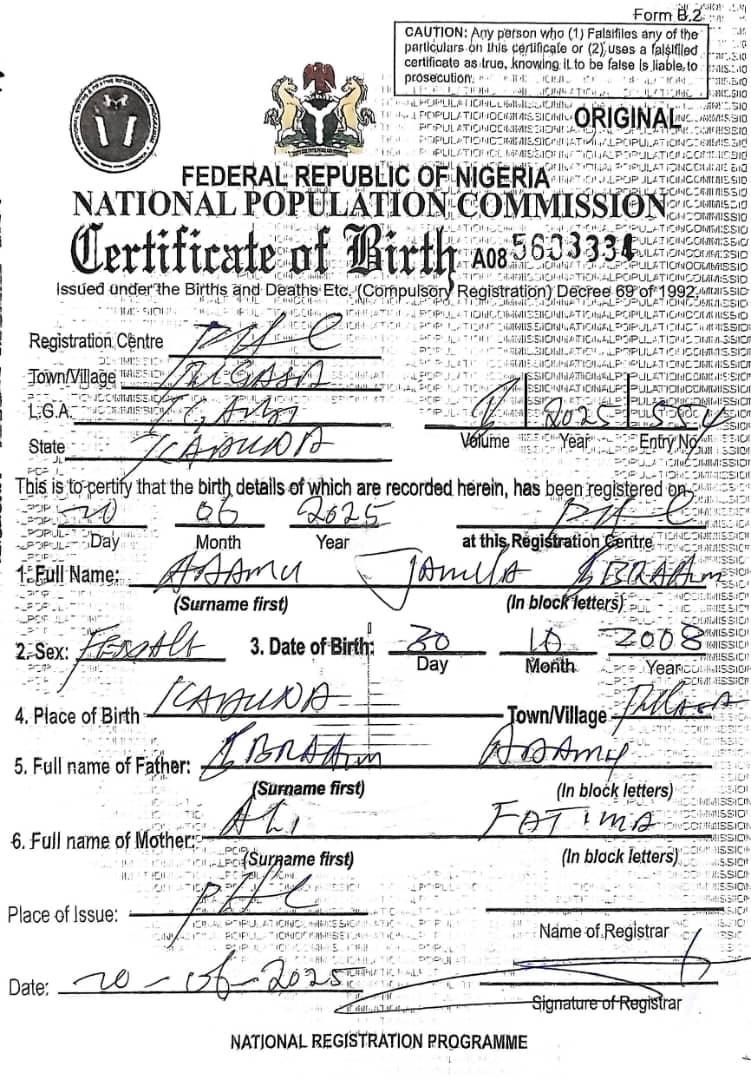 Form B.2
CAUTION: Any person who (1) Falsifiles any of the
particulars on this certificate or (2) uses a falsified
certificate as true, knowing it to be false is liable to
prosecution.
ORIGINAL
FEDERAL REPUBLIC OF NIGERIA
NATIONAL POPULATION COMMISSION
Certificate of Birth A08 5603334
Issued under the Births and Deaths Etc. (Compulsory Registration) Decree 69 of 1992
Registration Centre PHC
Town/Village
L.G.A.
State KADUNA
2025 554
Volume Year Entry No
This is to certify that the birth details of which are recorded herein, has been registered on
20 06 2025 PHC
Day Month Year at this Registration Centre
1. Full Name: ADAMU JAMILA IBRAHIM
(Surname first) (In block letters)
2. Sex: FEMALE 3. Date of Birth: 30 10 2008
Day Month Year
4. Place of Birth KADUNA Town/Village
5. Full name of Father: IBRAHIM ADAMU
(Surname first) (In block letters)
6. Full name of Mother: ALI FATIMA
(Surname first) (In block letters)
Place of Issue: PHC
Name of Registrar
Date: 20-06-2025
Signature of Registrar
NATIONAL REGISTRATION PROGRAMME